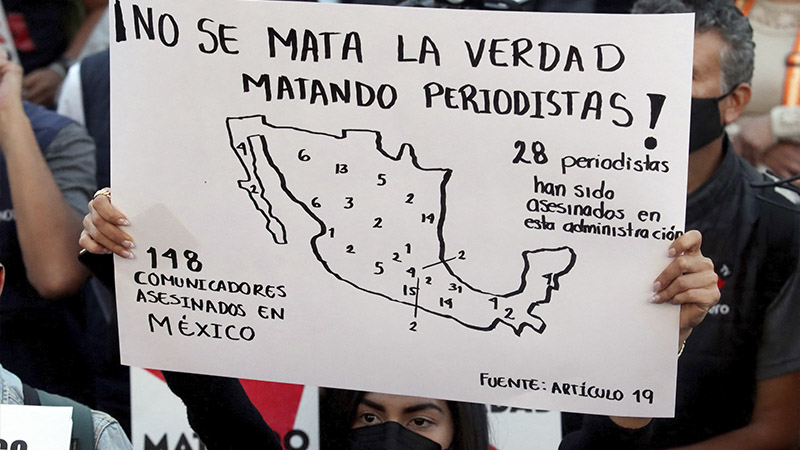 ¡NO SE MATA LA VERDAD
MATANDO PERIODISTAS!
28 periodistas
han sido
asesinados en
esta administración
4
6
13
5
2
2
6
3
2
14
1
2
1
2
2
5
4
2
15
31
14
4
1
2
2
148
COMUNICADORES
ASESINADOS EN
MÉXICO
FUENTE: ARTÍCULO 19